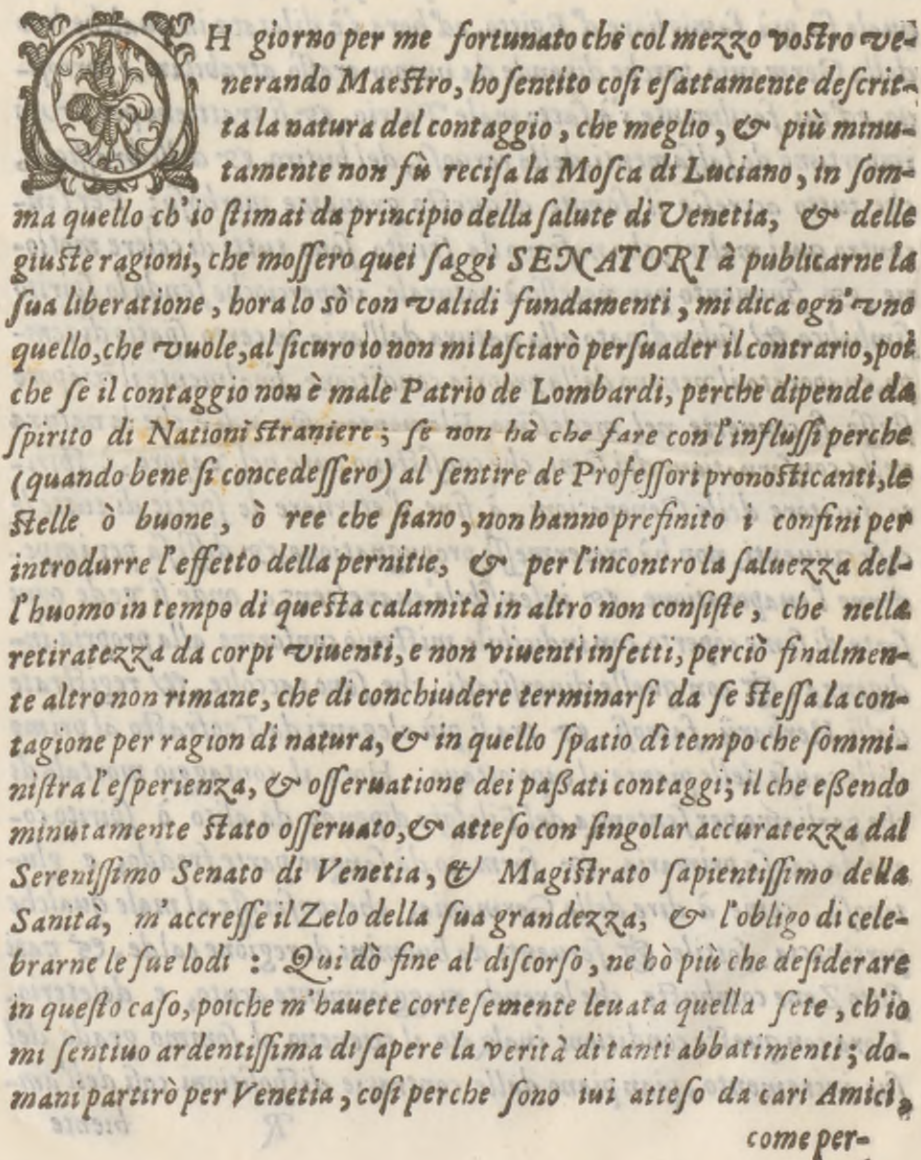 OH giorno per me fortunato chè col mezzo vostro ve-
nerando Maestro, ho sentito cosi esattamente descrit-
ta la natura del contaggio, che meglio, & più minu-
tamente non fù recisa la Mosca di Luciano, in som-
ma quello ch'io stimai da principio della salute di Venetia, & delle
giuste ragioni, che mossero quei saggi SENATORI à publicarne la
sua liberatione, hora lo sò con validi fundamenti, mi dica ogn'vno
quello, che vuole, al sicuro io non mi lasciarò persuader il contrario, poi
che se il contaggio non è male Patrio de Lombardi, perche dipende da
spirito di Nationi straniere; se non hà che fare con l'influssi perche
(quando bene si concedessero) al sentire de Professori pronosticanti, le
stelle ò buone, ò ree che siano, non hanno prefinito i confini per
introdurre l'effetto della pernitie, & per l'incontro la saluezza del-
l'huomo in tempo di questa calamità in altro non consiste, che nella
retiratezza da corpi viuenti, e non viuenti infetti, perciò finalmen-
te altro non rimane, che di conchiudere terminarsi da se stessa la con-
tagione per ragion di natura, & in quello spatio di tempo che sommi-
nistra l'esperienza, & osseruatione dei passati contaggi; il che essendo
minutamente stato osseruato, & atteso con singolar accuratezza dal
Serenissimo Senato di Venetia, & Magistrato sapientissimo della
Sanità, m'accresse il Zelo della sua grandezza, & l'obligo di cele-
brarne le sue lodi : Qui dò fine al discorso, ne hò più che desiderare
in questo caso, poiche m'hauete cortesemente leuata quella sete, ch'io
mi sentiuo ardentissima di sapere la verità di tanti abbatimenti; do-
mani partirò per Venetia, cosi perche sono iui atteso da cari Amici,
come per-